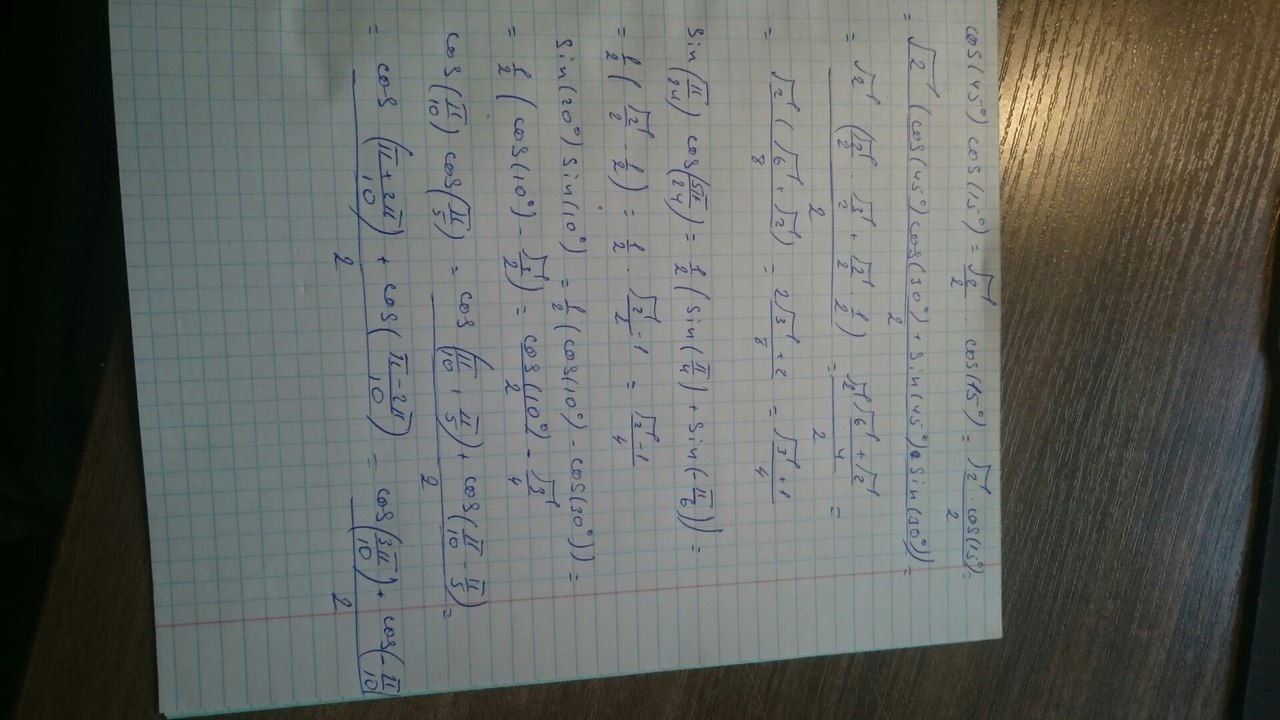 cos(45°) cos(15°) = √2/2 · cos(15°) = (√2 · cos(15°))/2 =
= (√2 (cos(45°) cos(30°) + sin(45°) sin(30°)))/2 =
= (√2 (√2/2 · √3/2 + √2/2 · 1/2))/2 = (√2 (√6 + √2)/4)/2 =
= (√2 (√6 + √2))/8 = (2√3 + 2)/8 = (√3 + 1)/4
sin(π/24) cos(5π/24) = 1/2 (sin(π/4) + sin(-π/6)) =
= 1/2 (√2/2 - 1/2) = 1/2 · (√2 - 1)/2 = (√2 - 1)/4
sin(20°) sin(10°) = 1/2 (cos(10°) - cos(30°)) =
= 1/2 (cos(10°) - √3/2) = cos(10°)/2 - √3/4
cos(π/10) cos(π/5) = (cos(π/10 + π/5) + cos(π/10 - π/5))/2 =
= (cos((π + 2π)/10) + cos((π - 2π)/10))/2 = (cos(3π/10) + cos(-π/10))/2